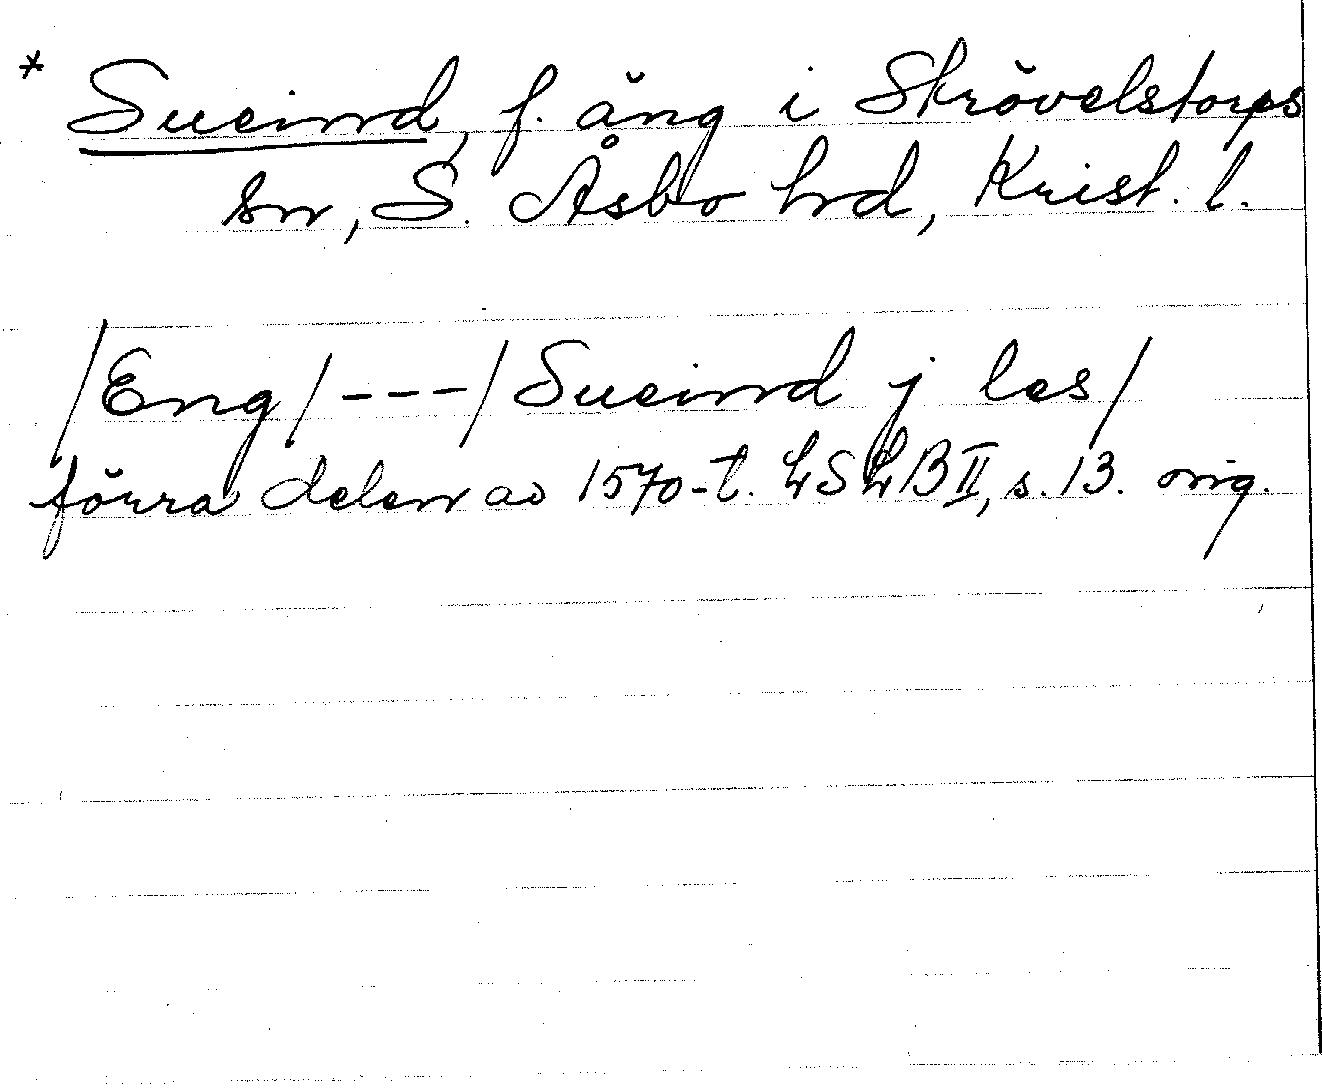 * Sueinrd, f. äng i Strövelstorps
sn, S. Åsbo hrd, Krist. l.
/Eng/---/Sueinrd j les/
förra delen av 1570-t. LSLB II, s. 13. orig.